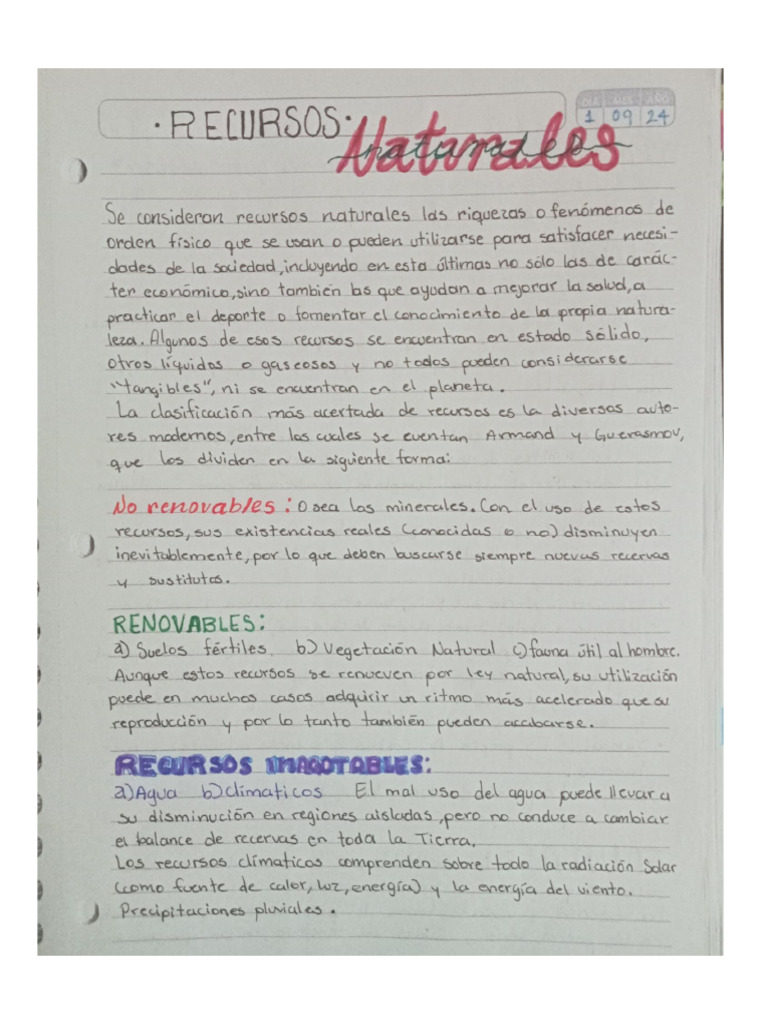 ·RECURSOS·
Naturales
DIA MES AÑO
1 09 24
Se consideran recursos naturales las riquezas o fenómenos de
orden físico que se usan o pueden utilizarse para satisfacer necesi-
dades de la sociedad, incluyendo en esta últimas no sólo las de carác-
ter económico, sino también las que ayudan a mejorar la salud, a
practicar el deporte o fomentar el conocimiento de la propia natura-
leza. Algunos de esos recursos se encuentran en estado sólido,
otros líquidos o gaseosos y no todos pueden considerarse
"tangibles", ni se encuentran en el planeta.
La clasificación más acertada de recursos es la diversos auto-
res modernos, entre los cuales se cuentan Armand y Guerasmov,
que los dividen en la siguiente forma:
No renovables: O sea los minerales. Con el uso de estos
recursos, sus existencias reales (conocidas o no) disminuyen
inevitablemente, por lo que deben buscarse siempre nuevas recervas
y sustitutos.
RENOVABLES:
a) Suelos fértiles. b) Vegetación Natural c) fauna útil al hombre.
Aunque estos recursos se renueven por ley natural, su utilización
puede en muchos casos adquirir un ritmo más acelerado que su
reproducción y por lo tanto también pueden acabarse.
RECURSOS INAGOTABLES:
a) Agua b) climaticos El mal uso del agua puede llevar a
su disminución en regiones aisladas, pero no conduce a cambiar
el balance de recervas en toda la Tierra.
Los recursos clímaticos comprenden sobre todo la radiación Solar
(como fuente de calor, luz, energía) y la energía del viento.
Precipitaciones pluviales.